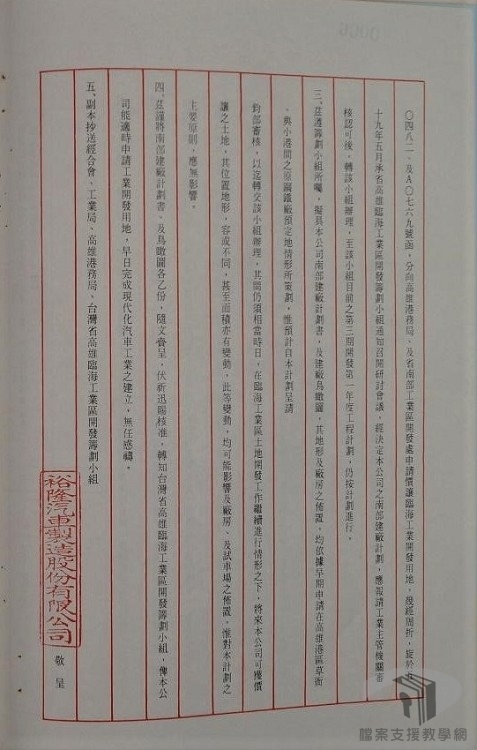 〇四八二、及A〇七六九號函，分向高雄港務局、及省南部工業區開發處申請價讓臨海工業區開發用地，幾經周折，旋於五
十九年五月承省高雄臨海工業區開發籌劃小組通知召開研討會議，經決定本公司之南部建廠計劃，應報請工業主管機關審
核認可後，轉該小組辦理，至該小組目前之第三期開發第一年度工程計劃，仍按計劃進行。
三、茲遵籌劃小組所囑，擬具本公司南部建廠計劃書，及建廠鳥瞰圖，其地形及廠房之佈置，均依據早期申請在高雄港區草衙
、與小港間之原鋼鐵廠預定地情形所策劃，惟預計自本計劃呈請
鈞部審核，以迄轉交該小組辦理，其間仍須相當時日，在臨海工業區土地開發工作繼續進行情形之下，將來本公司可獲價
讓之土地，其位置地形，容或不同，甚至面積亦有變動，此等變動，均可能影響及廠房、及試車場之佈置，惟對本計劃之
主要原則，應無影響。
四、茲謹將南部建廠計劃書、及鳥瞰圖各乙份，隨文賫呈，伏祈迅賜核准，轉知台灣省高雄臨海工業區開發籌劃小組，俾本公
司能適時申請工業開發用地，早日完成現代化汽車工業之建立，無任感禱。
五、副本抄送經合會、工業局、高雄港務局、台灣省高雄臨海工業區開發籌劃小組
裕隆汽車製造股份有限公司
敬呈
檔案支援教學網